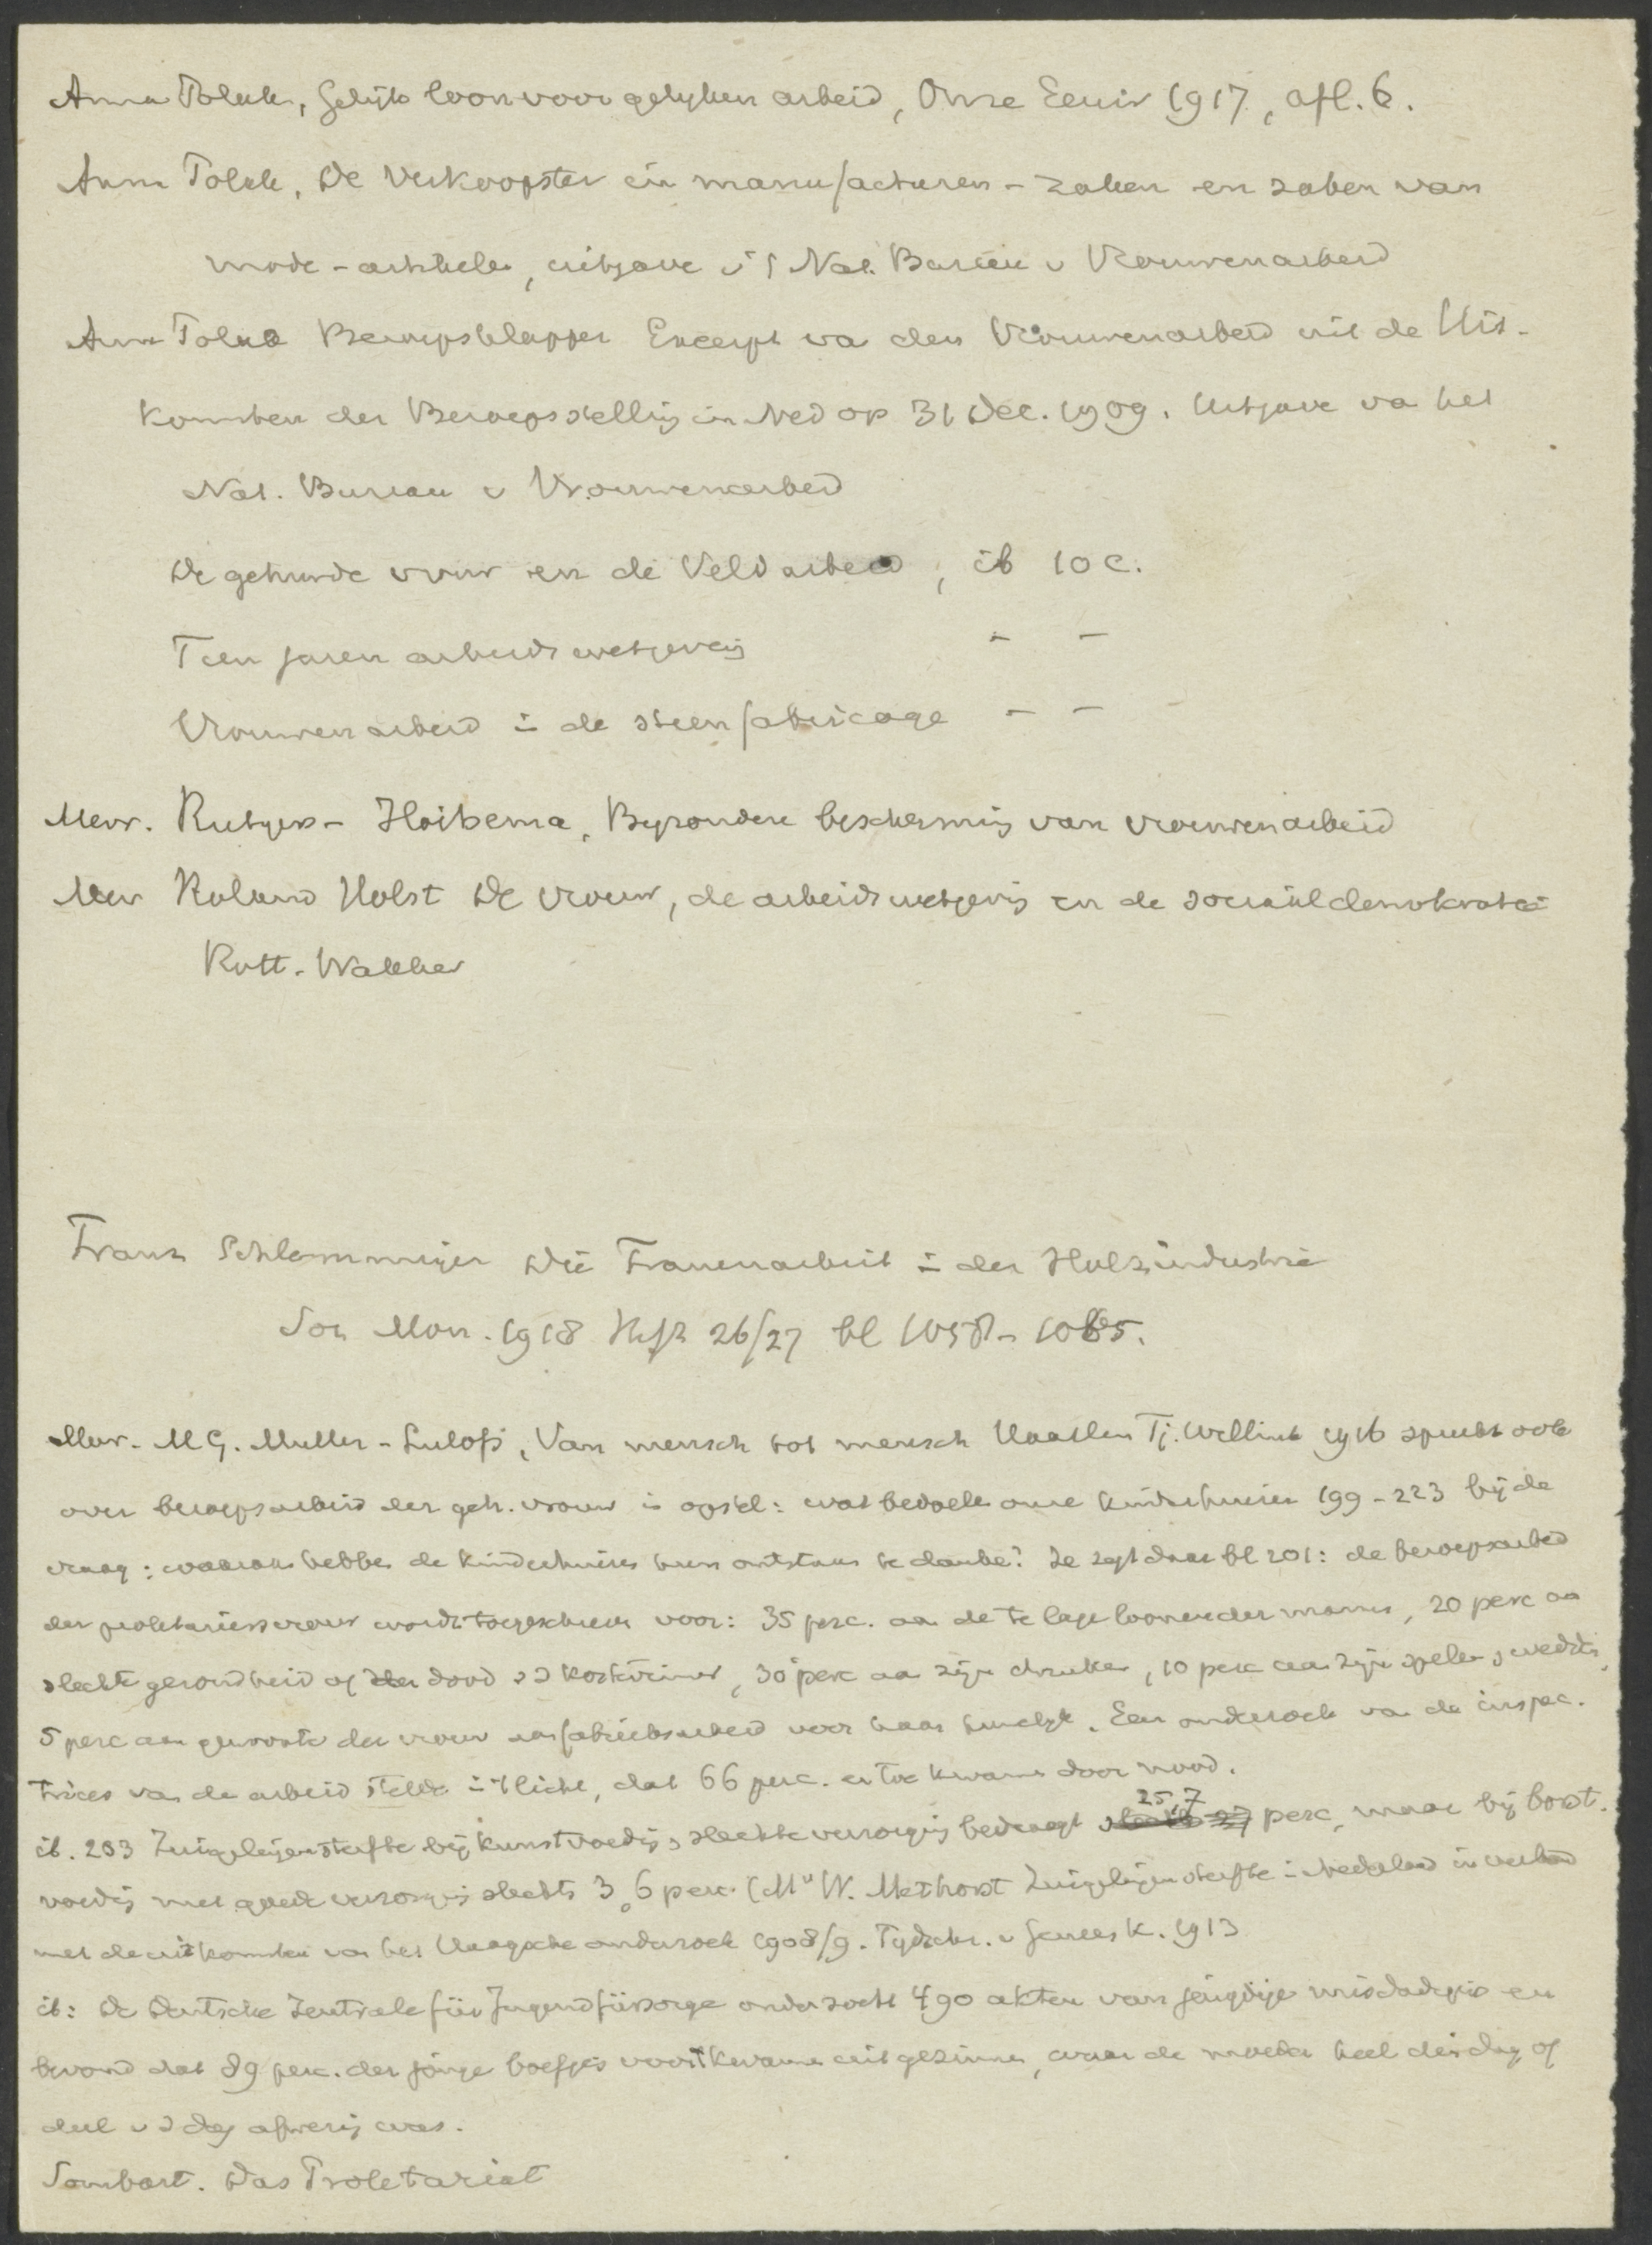 Anna Polak, Gelijk loon voor gelijken arbeid, Onze Eeuw 1917, afl. 6.
Anna Polak, De Verkoopster in manufacturen-zaken en zaken van
mode-artikelen, uitgave v/h Nat. Bureau v Vrouwenarbeid
Anna Polak Beroepsklapper Excerpt va den Vrouwenarbeid uit de Uit-
komsten der Beroepstelling in Ned op 31 Dec. 1909. Uitgave va het
Nat. Bureau v Vrouwenarbeid
De gehuwde vrouw en de Veldarbeid, ib 10 c.
Tien jaren arbeidswetgeving - -
Vrouwenarbeid in de steenfabricage - -
Mevr. Rutgers-Hoitsema, Byzondere bescherming van vrouwenarbeid
Mevr Roland Holst De vrouw, de arbeidswetgeving en de sociaaldemokratie
Rott. Wakker
Franz Schlammeijer Die Frauenarbeit in der Holzindustrie
Soz Mon. 1918 Heft 26/27 bl 1058-1065.
Mevr. M G. Muller-Lulofs, Van mensch tot mensch Haarlem Tj. Willink 1916 spreekt ook
over beroepsarbeid der geh. vrouw in opstel: wat bedoelen onze kinderhuizen 199-223 bij de
vraag: waaraan hebben de kinderhuizen hun ontstaan te danken? Ze zegt daar bl 201: de beroepsarbeid
der proletariersvrouw wordt toegeschreven voor: 35 perc. aan de te lage loonen der mannen, 20 perc aan
slechte gezondheid of dood v d kostwinner, 30 perc aan zijn drinken, 10 perc aan zijn spelen,
5 perc aan gewoonte der vrouw aan fabrieksarbeid voor haar huwelijk. Een onderzoek van de inspec.
trices van de arbeid stelde in 't licht, dat 66 perc. er toe kwamen door nood.
ib. 203 Zuigelingensterfte bij kunstvoeding, slechte verzorging bedraagt 25,7 perc, maar bij borst.
voeding met goede verzorging slechts 3,6 perc. (Mr W. Methorst Zuigelingensterfte in Nederland in verband
met de uitkomsten van het Haagsche onderzoek 1908/9. Tijdschr. v Geneesk. 1913
ib: De Deutsche Zentrale für Jugendfürsorge onderzocht 490 akten van jeugdige misdadigers en
bevond dat 89 perc. der jonge boefjes voortkwamen uit gezinnen, waar de moeder heel den dag of
deel v d dag afwezig was.
Sombart. Das Proletariat